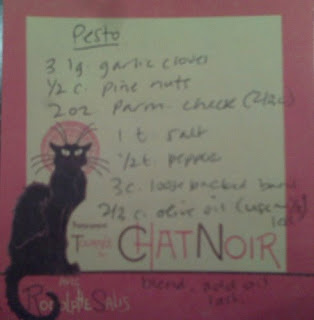 Pesto
3 lg. garlic cloves
1/2 c. pine nuts
2 oz parm. cheese (2/3 c)
1 t. salt
1/2 t. pepper
3 c. loose packed basil
2/3 c. olive oil
CHAT NOIR
AVEC
RODOLPHE SALIS
blend, add oil
last.